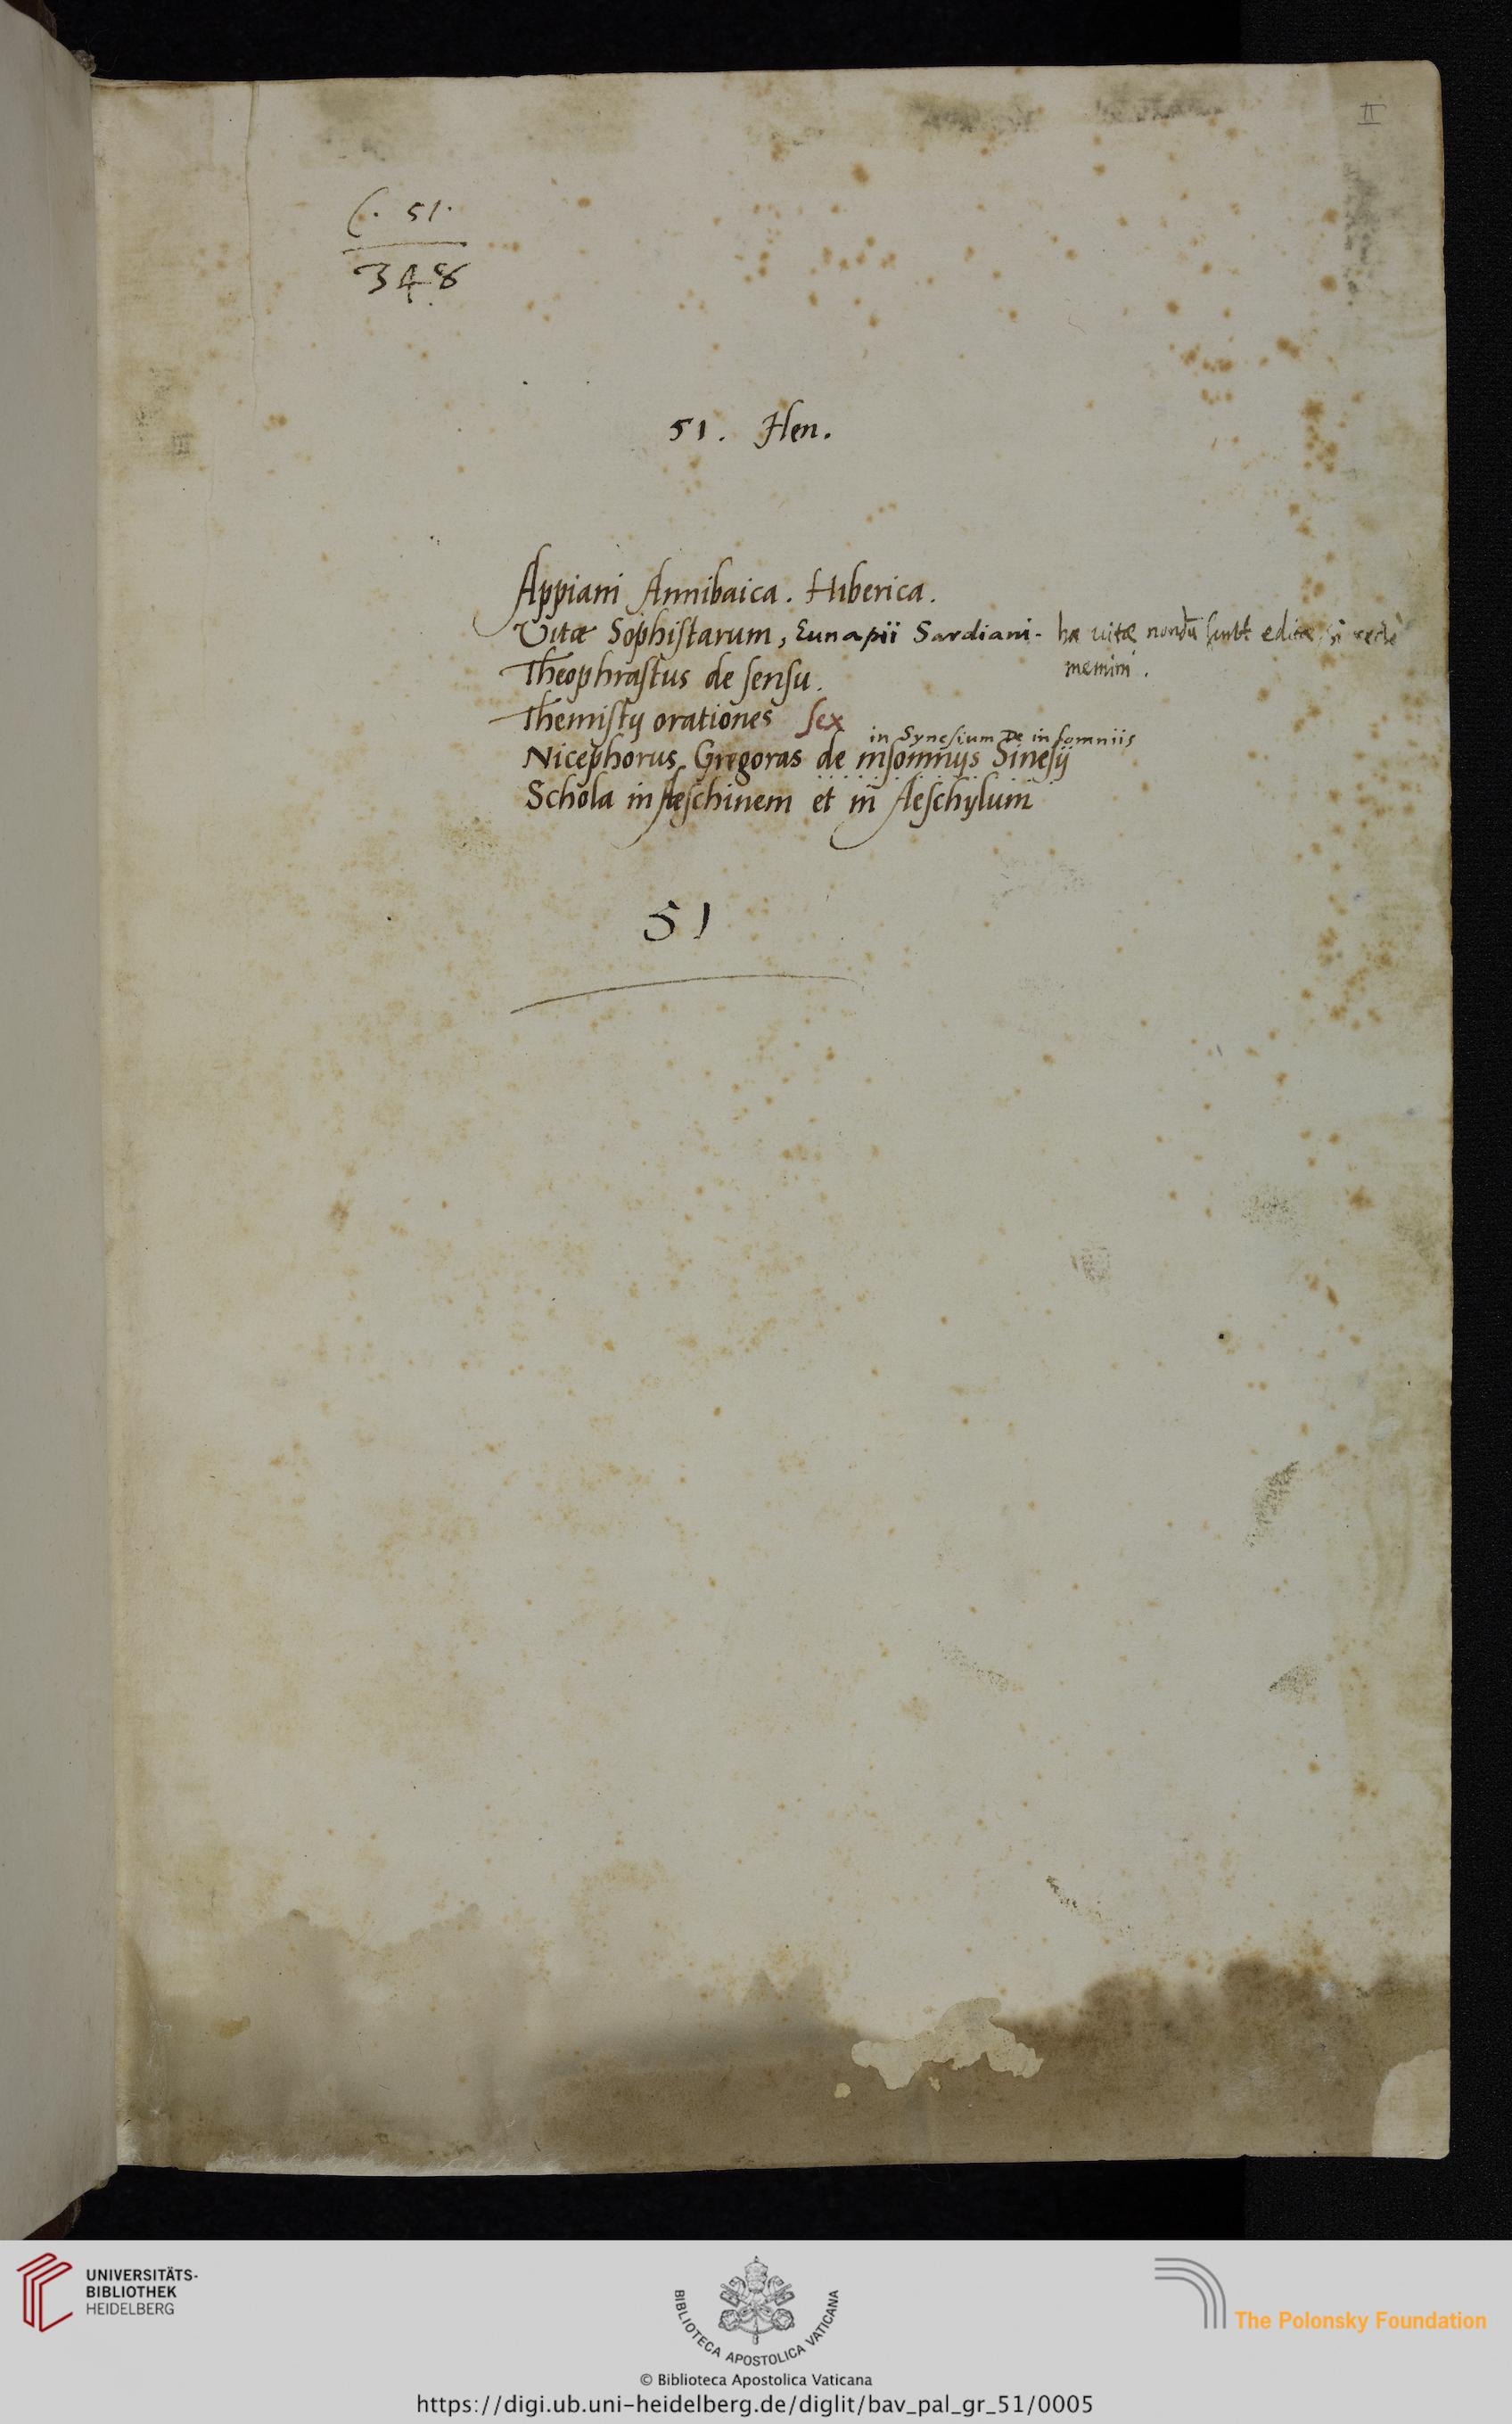 II
C. 51.
348
51. Hen.
Appiani Annibaica. Hiberica.
Vitæ Sophistarum, Eunapii Sardiani - hæ uitæ nondū sunt editæ, si recte
memini.
Theophrastus de sensu.
Themistij orationes sex
in Synesium De insomniis
Nicephorus Gregoras de insomnijs Sinesij
Schola in Aeschinem et in Aeschylum
51
UNIVERSITÄTS-
BIBLIOTHEK
HEIDELBERG
BIBLIOTECA APOSTOLICA VATICANA
The Polonsky Foundation
© Biblioteca Apostolica Vaticana
https://digi.ub.uni-heidelberg.de/diglit/bav_pal_gr_51/0005